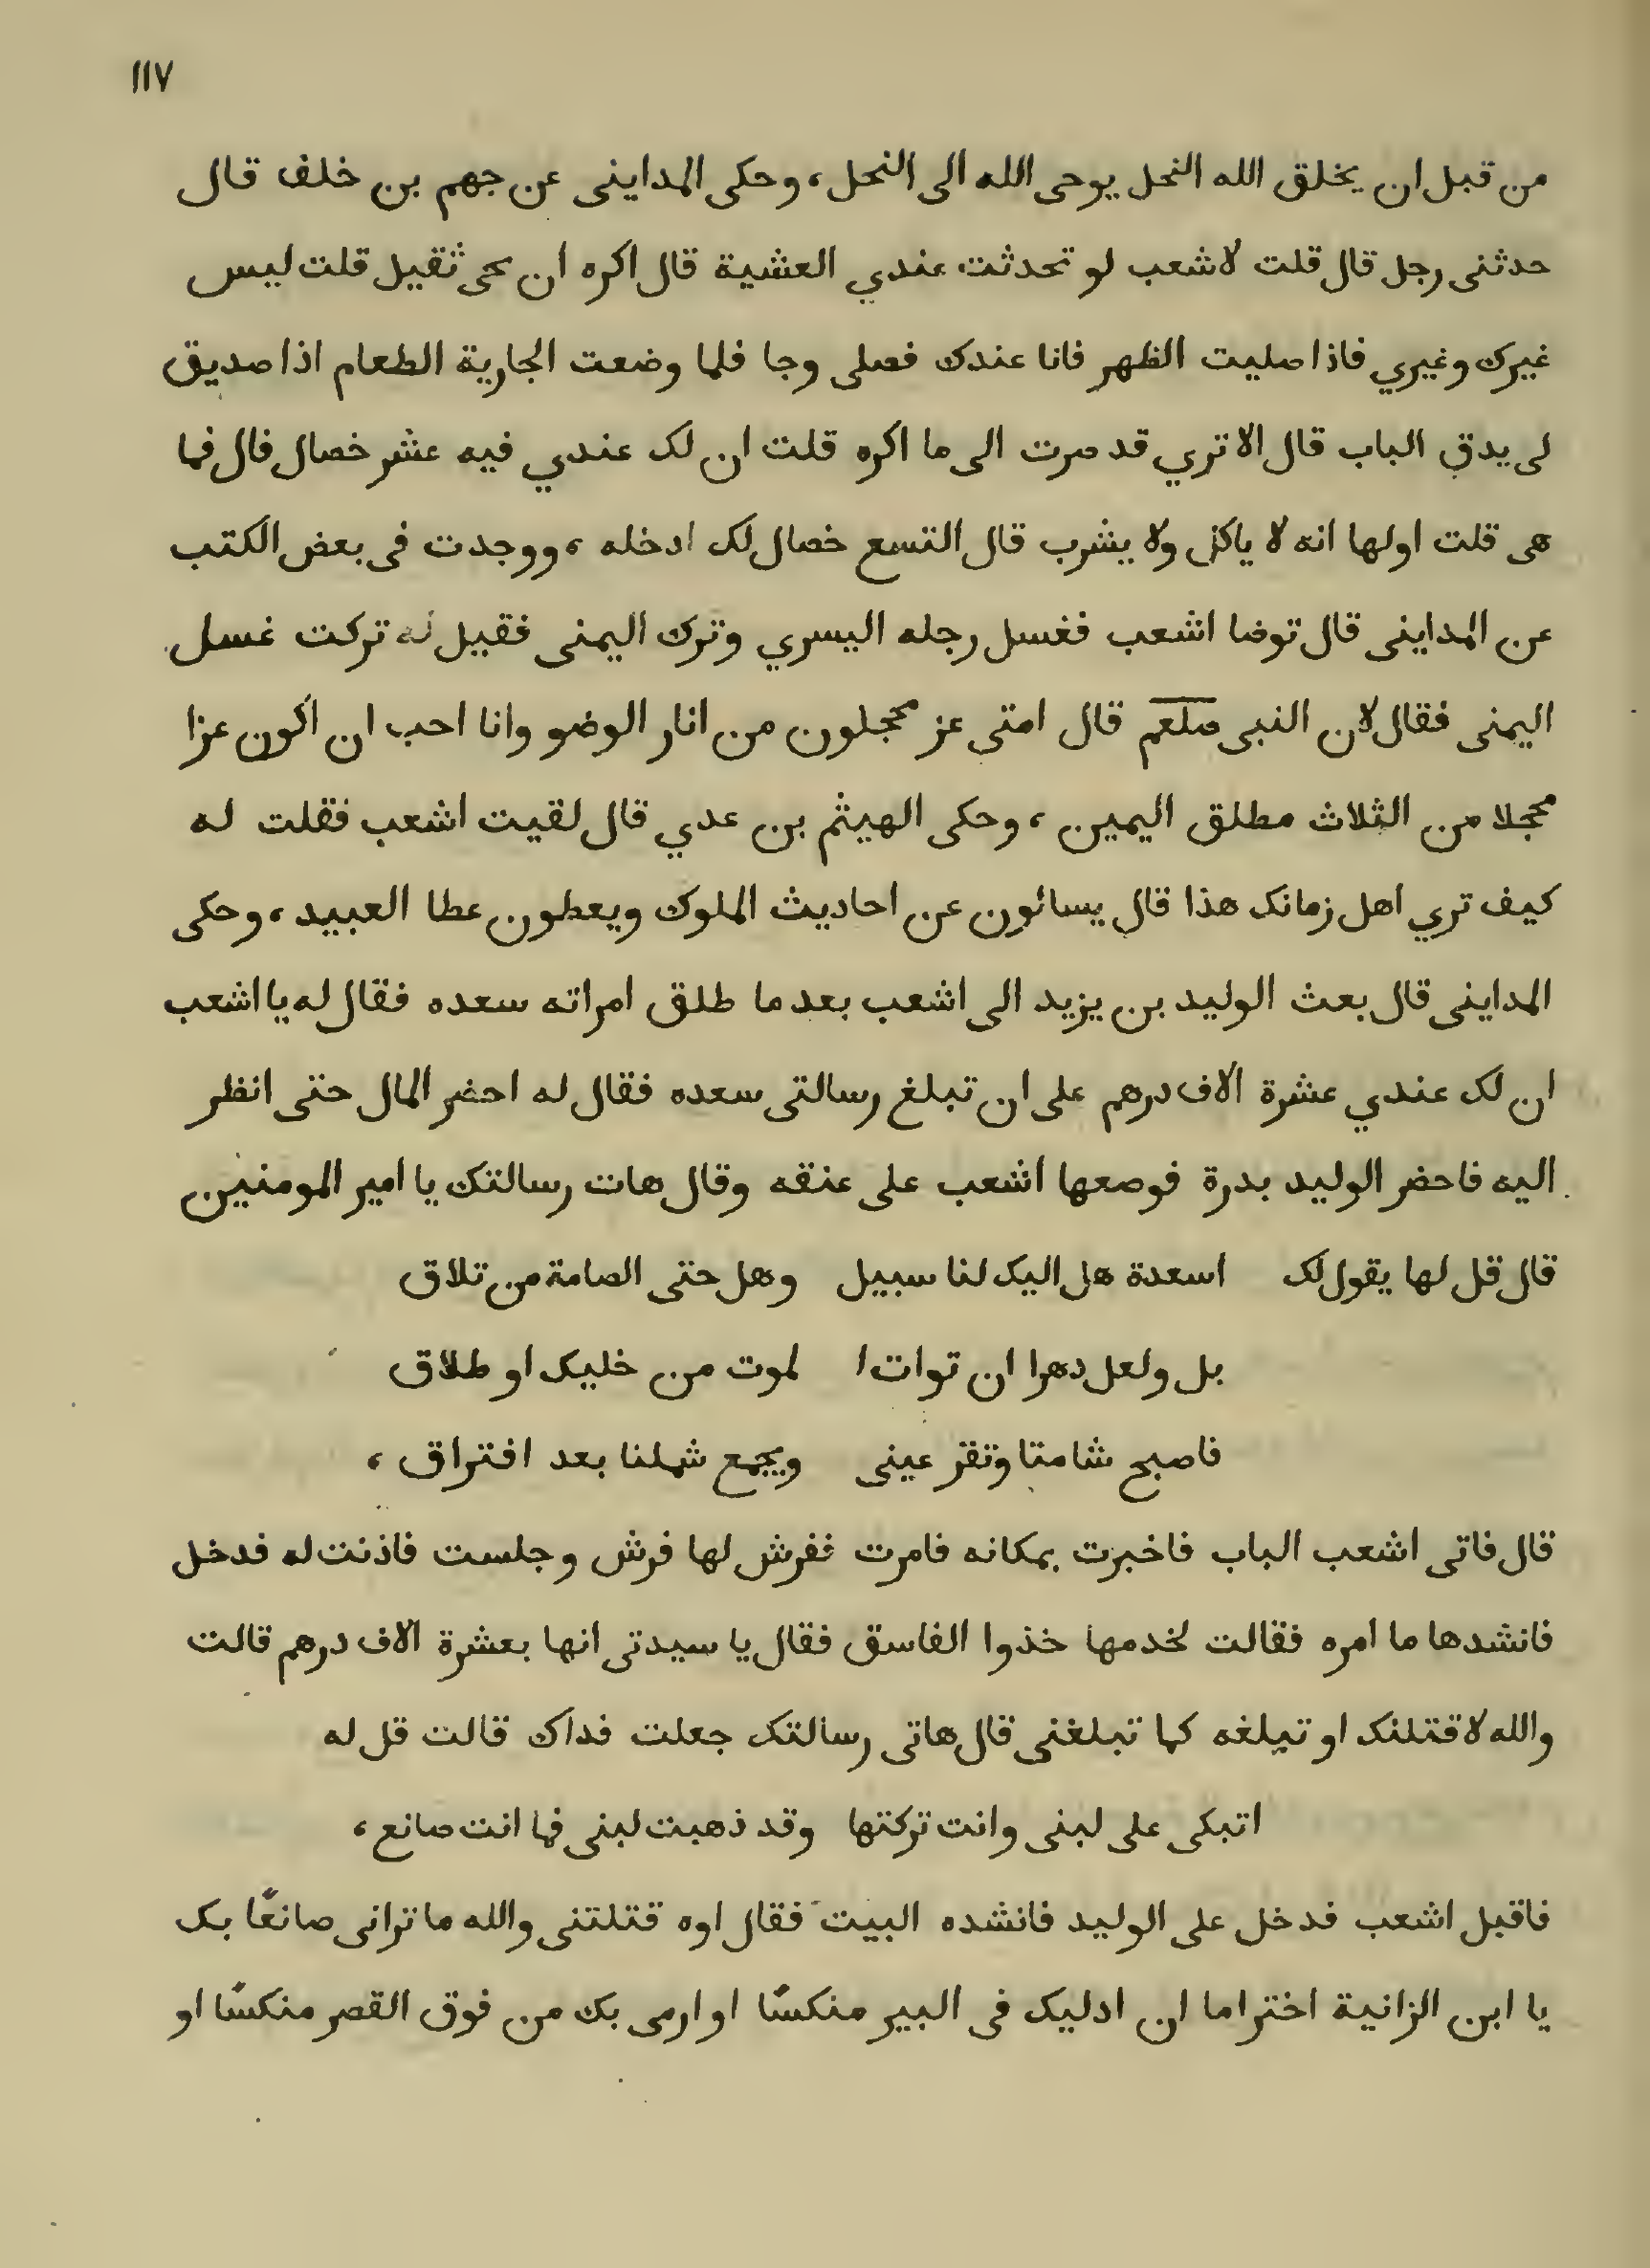 ١١٧
من قبل ان يخلق الله النحل يوحى الله الى النحل، وحكى المداينى عن جهم بن خلف قال
حدثنى رجل قال قلت لاشعب لو تحدثت عندي العشية قال اكره ان يجى ثقيل قلت ليس
غيرك وغيري فاذا صليت الظهر فانا عندك فصلى وجا فلما وضعت الجارية الطعام اذا صديق
لى يدق الباب قال الا تري قد صرت الى ما اكره قلت ان لك عندي فيه عشر خصال قال فما
هى قلت اولها انه لا ياكل ولا يشرب قال التسع خصال لك ادخله، ووجدت فى بعض الكتب
عن المداينى قال توضا اشعب فغسل رجله اليسري وترك اليمنى فقيل له تركت غسل
اليمنى فقال لان النبى صلعم قال امتى عز محجلون من اثار الوضو وانا احب ان اكون عزا
محجلا من الثلاث مطلق اليمين، وحكى الهيثم بن عدي قال لقيت اشعب فقلت له
كيف تري اهل زمانك هذا قال يسائون عن احاديث الملوك ويعطون عطا العبيد، وحكى
المداينى قال بعث الوليد بن يزيد الى اشعب بعد ما طلق امراته سعده فقال له يا اشعب
ان لك عندي عشرة الاف درهم على ان تبلغ رسالتى سعده فقال له احضر المال حتى انظر
اليه فاحضر الوليد بدرة فوصعها اشعب على عنقه وقال هات رسالتك يا امير المومنين
قال قل لها يقول لك اسعدة هل اليك لنا سبيل وهل حتى الصامة من تلاق
بل ولعل دهرا ان توات ا لموت من خليك او طلاق
فاصبح شامتا وتقر عينى ويجمع شملنا بعد افتراق،
قال فاتى اشعب الباب فاخبرت بمكانه فامرت ففرش لها فرش وجلست فاذنت له فدخل
فانشدها ما امره فقالت لخدمها خذوا الفاسق فقال يا سيدتى انها بعشرة الاف درهم قالت
والله لاقتلنك او تبلغه كما تبلغنى قال هاتى رسالتك جعلت فداك قالت قل له
اتبكى على لبنى وانت تركتها وقد ذهبت لبنى فما انت صانع،
فاقبل اشعب فدخل على الوليد فانشده البيت فقال اوه قتلتنى والله ما ترانى صانعًا بك
يا ابن الزانية اختر اما ان ادليك فى البير منكسًا او ارمى بك من فوق القصر منكسًا او